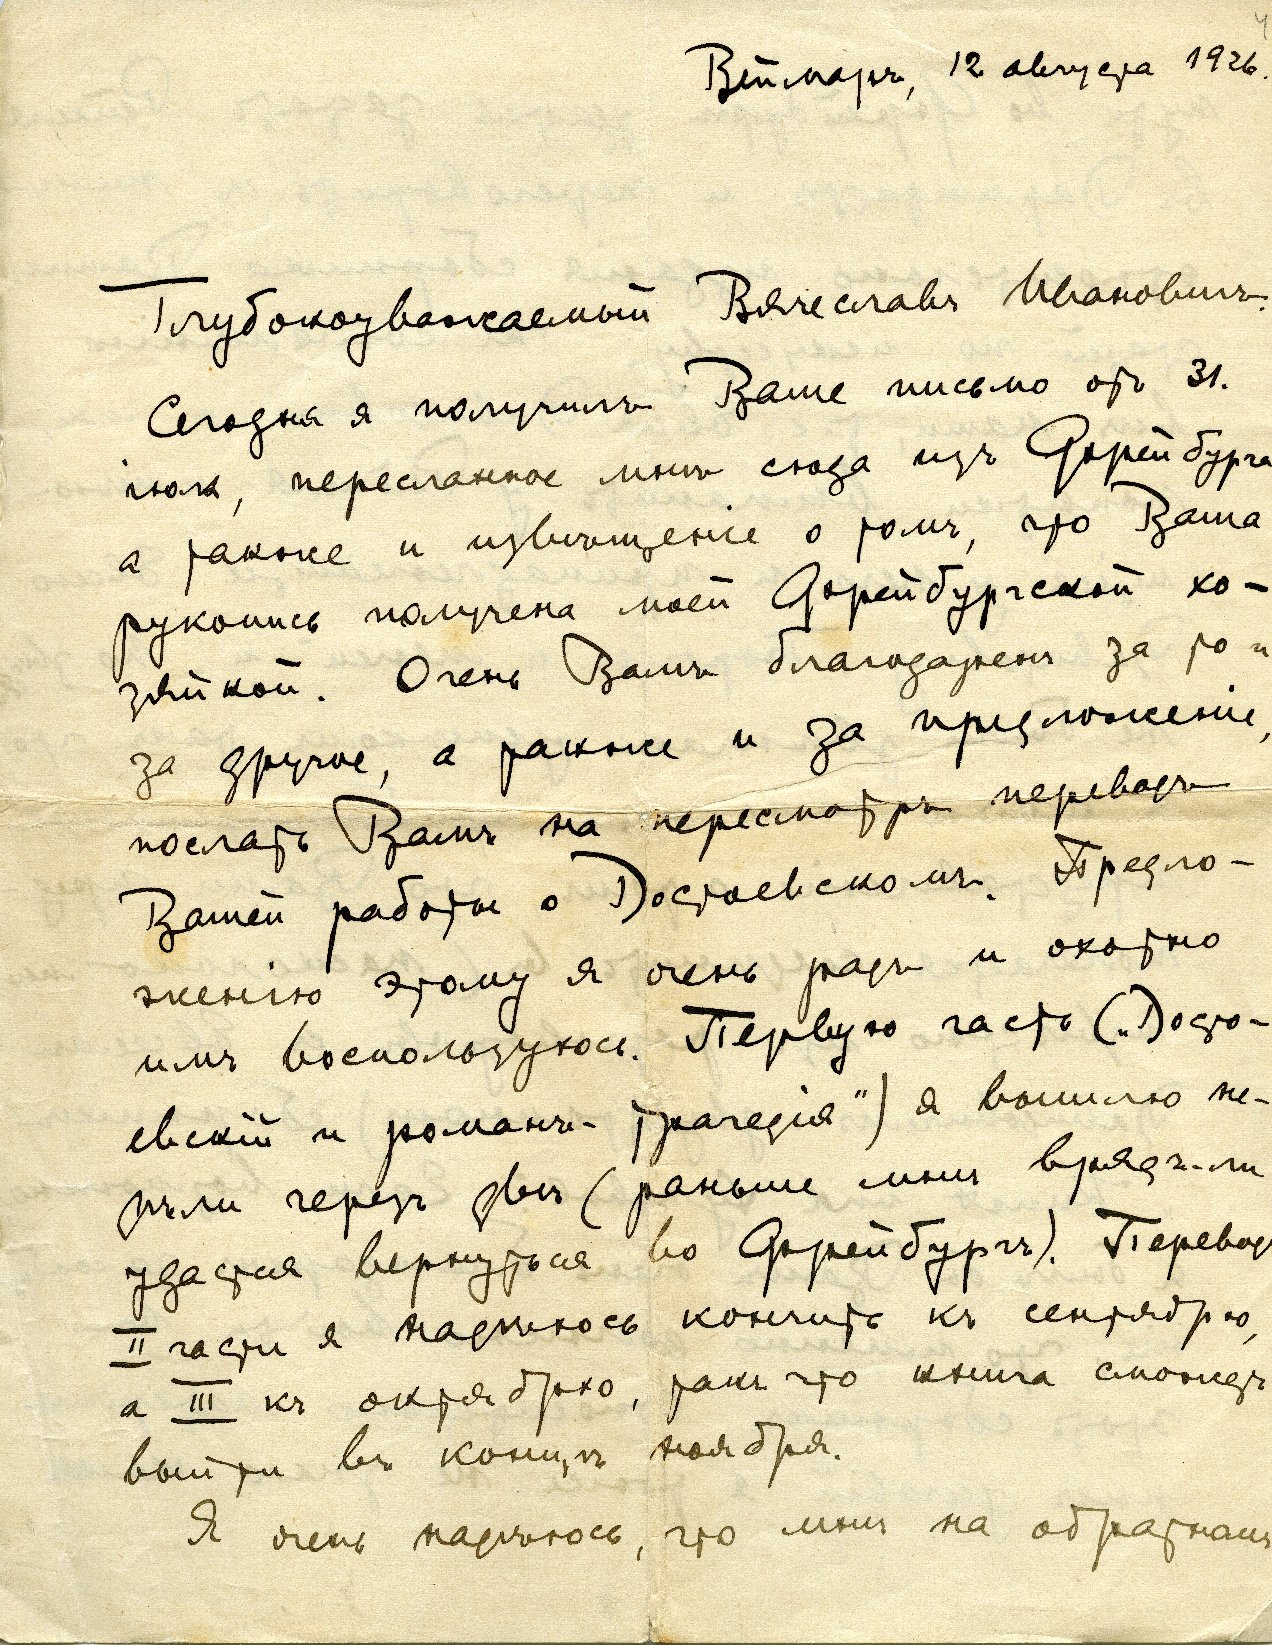 Веймаръ, 12 августа 1926.
Глубокоуважаемый Вячеславъ Ивановичъ.
Сегодня я получилъ Ваше письмо отъ 31.
іюля, пересланное мнѣ сюда изъ Фрейбурга
а также и извѣщеніе о томъ, что Ваша
рукопись получена моей Фрейбургской хо-
зяйкой. Очень Вамъ благодаренъ за то и
за другое, а также и за предложеніе,
послать Вамъ на пересмотръ переводъ
Вашей работы о Достоевскомъ. Предло-
женію этому я очень радъ и охотно
имъ воспользуюсь. Первую часть („Досто-
евскій и романъ-трагедія") я вышлю не-
дѣли черезъ двѣ (раньше мнѣ врядъ-ли
удастся вернуться во Фрейбургъ). Переводъ
II части я надѣюсь кончить къ сентябрю,
а III къ октябрю, такъ что книга сможетъ
выйти въ концѣ ноября.
Я очень надѣюсь, что мнѣ на обратномъ